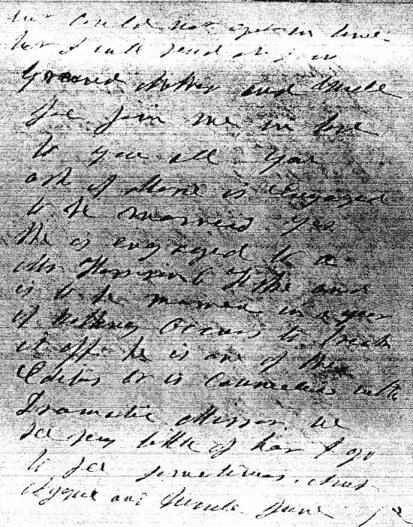 but could not get in time
but I will send it in
Grand Mother and Uncle
Joe join me in love
to you all You
ask if Marie is engaged
to be married Yes
she is engaged to a
Mr Harrison and
is to be married in a year
if nothing occurs to break
it off he is one of the
Editors or is connected with
Dramatic Mirror we
see very little of her I go
to see sometimes Aunt
and Uncle June